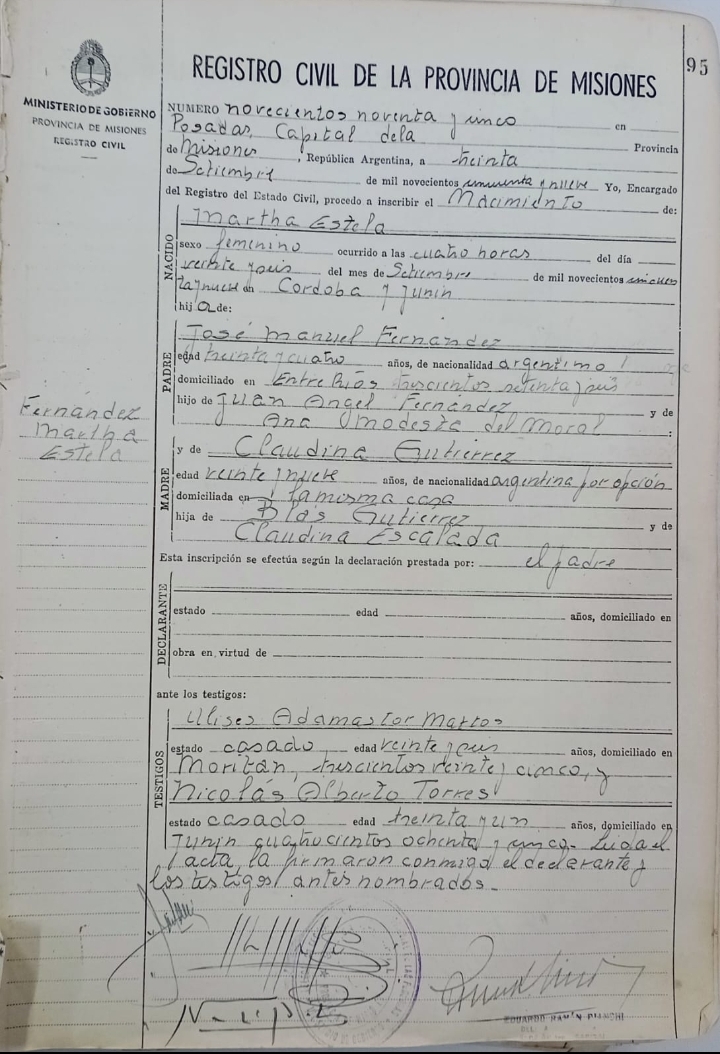 95
MINISTERIO DE GOBIERNO
PROVINCIA DE MISIONES
REGISTRO CIVIL
REGISTRO CIVIL DE LA PROVINCIA DE MISIONES
NUMERO novecientos noventa y cinco en
Posadas, Capital de la Provincia
de Misiones, República Argentina, a treinta
de Setiembre de mil novecientos cincuenta y nueve Yo, Encargado
del Registro del Estado Civil, procedo a inscribir el Nacimiento de:
NACIDO
Martha Estela
sexo femenino ocurrido a las cuatro horas del día
veinte y seis del mes de Setiembre de mil novecientos cincuen
ta y nueve en Cordoba y Junin
hija de:
PADRE
José Manuel Fernández
edad treinta y cuatro años, de nacionalidad argentino
domiciliado en Entre Ríos trescientos setenta y seis
hijo de Juan Angel Fernández y de
Ana Modesta del Moral :
Fernández
Martha
Estela
MADRE
y de Claudina Gutiérrez
edad veinte y nueve años, de nacionalidad argentina por opción
domiciliada en la misma casa
hija de Blás Gutiérrez y de
Claudina Escalada
Esta inscripción se efectúa según la declaración prestada por: el padre
DECLARANTE
estado edad años, domiciliado en
obra en virtud de
ante los testigos:
TESTIGOS
Ulises Adamastor Mattos
estado casado edad veinte y seis años, domiciliado en
Moritán, trescientos veinte y cinco, y
Nicolás Alberto Torres
estado casado edad treinta y un años, domiciliado en
Junin cuatrocientos ochenta y cinco. Leida el
acta, la firmaron conmigo el declarante y
los testigos antes nombrados.
EDUARDO RAMÓN BIANCHI